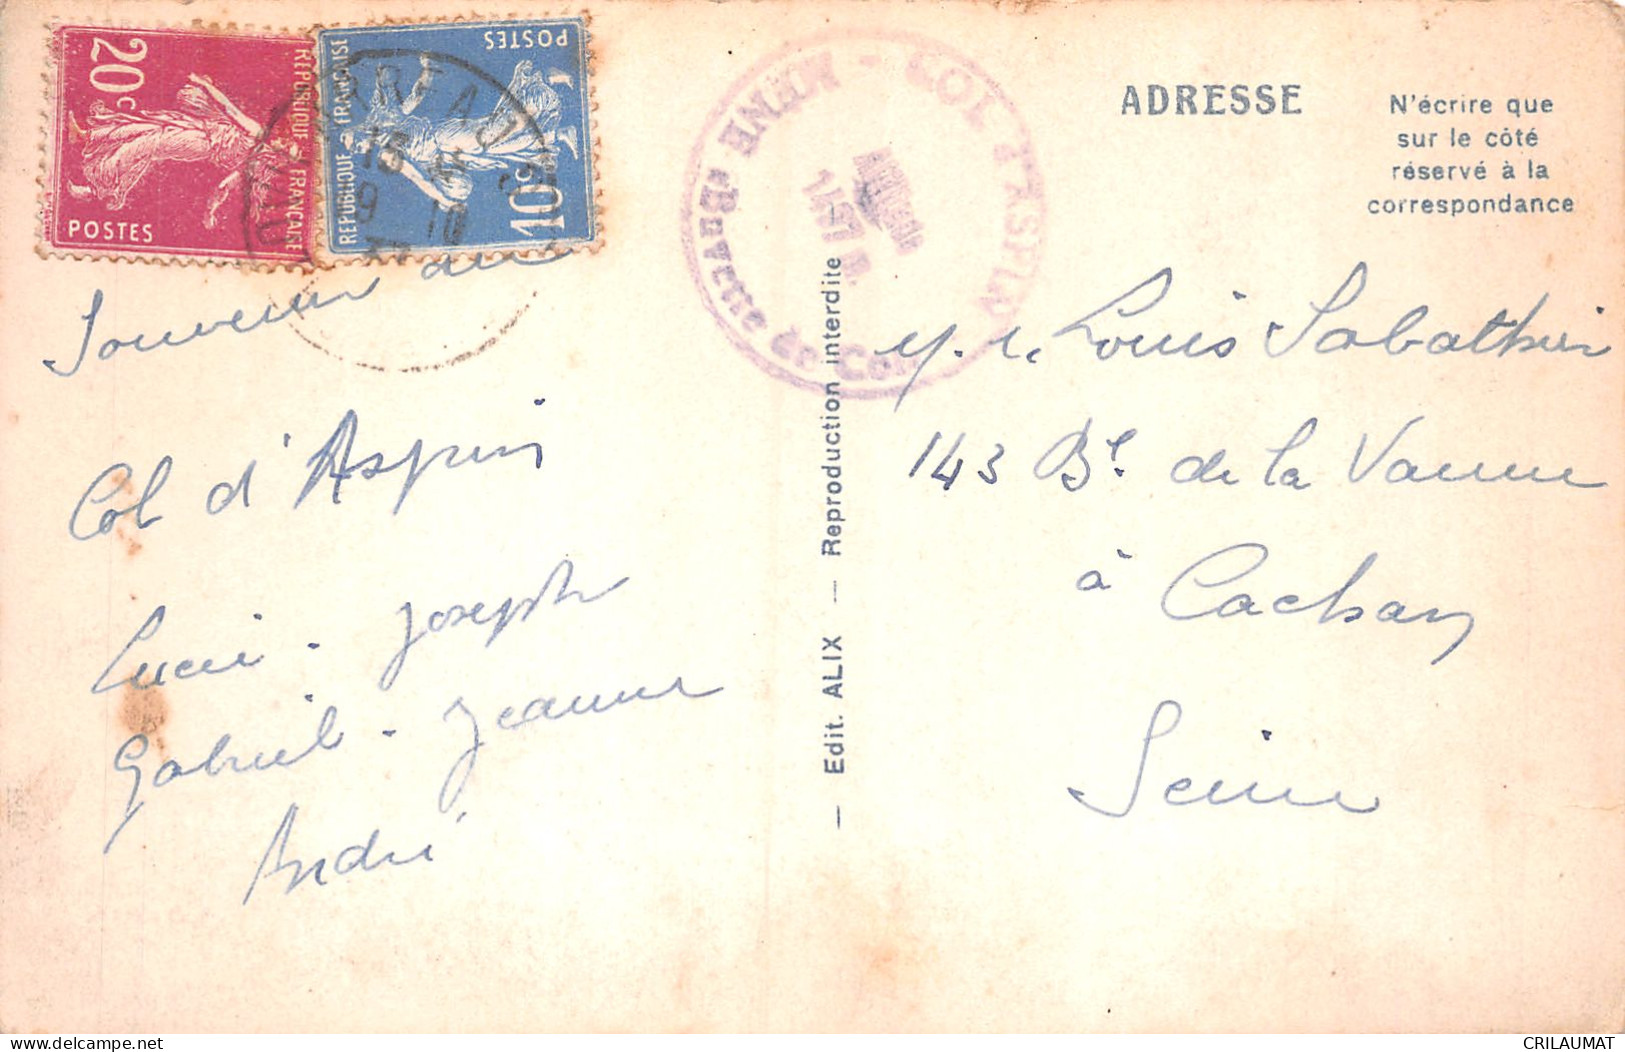 20c
RÉPUBLIQUE FRANÇAISE
POSTES
RÉPUBLIQUE FRANÇAISE
POSTES
10c
15
9 10
COL D'ASPIN
Buvette du Col
ADRESSE
N'écrire que
sur le côté
réservé à la
correspondance
Souvenir du
Col d'Aspin
Lucie - Joseph
Gabriel - Jeanne
André
— Edit. ALIX — Reproduction interdite —
Louis Sabathier
143 Bd de la Vanne
à Cachan
Seine
CRILAUMAT